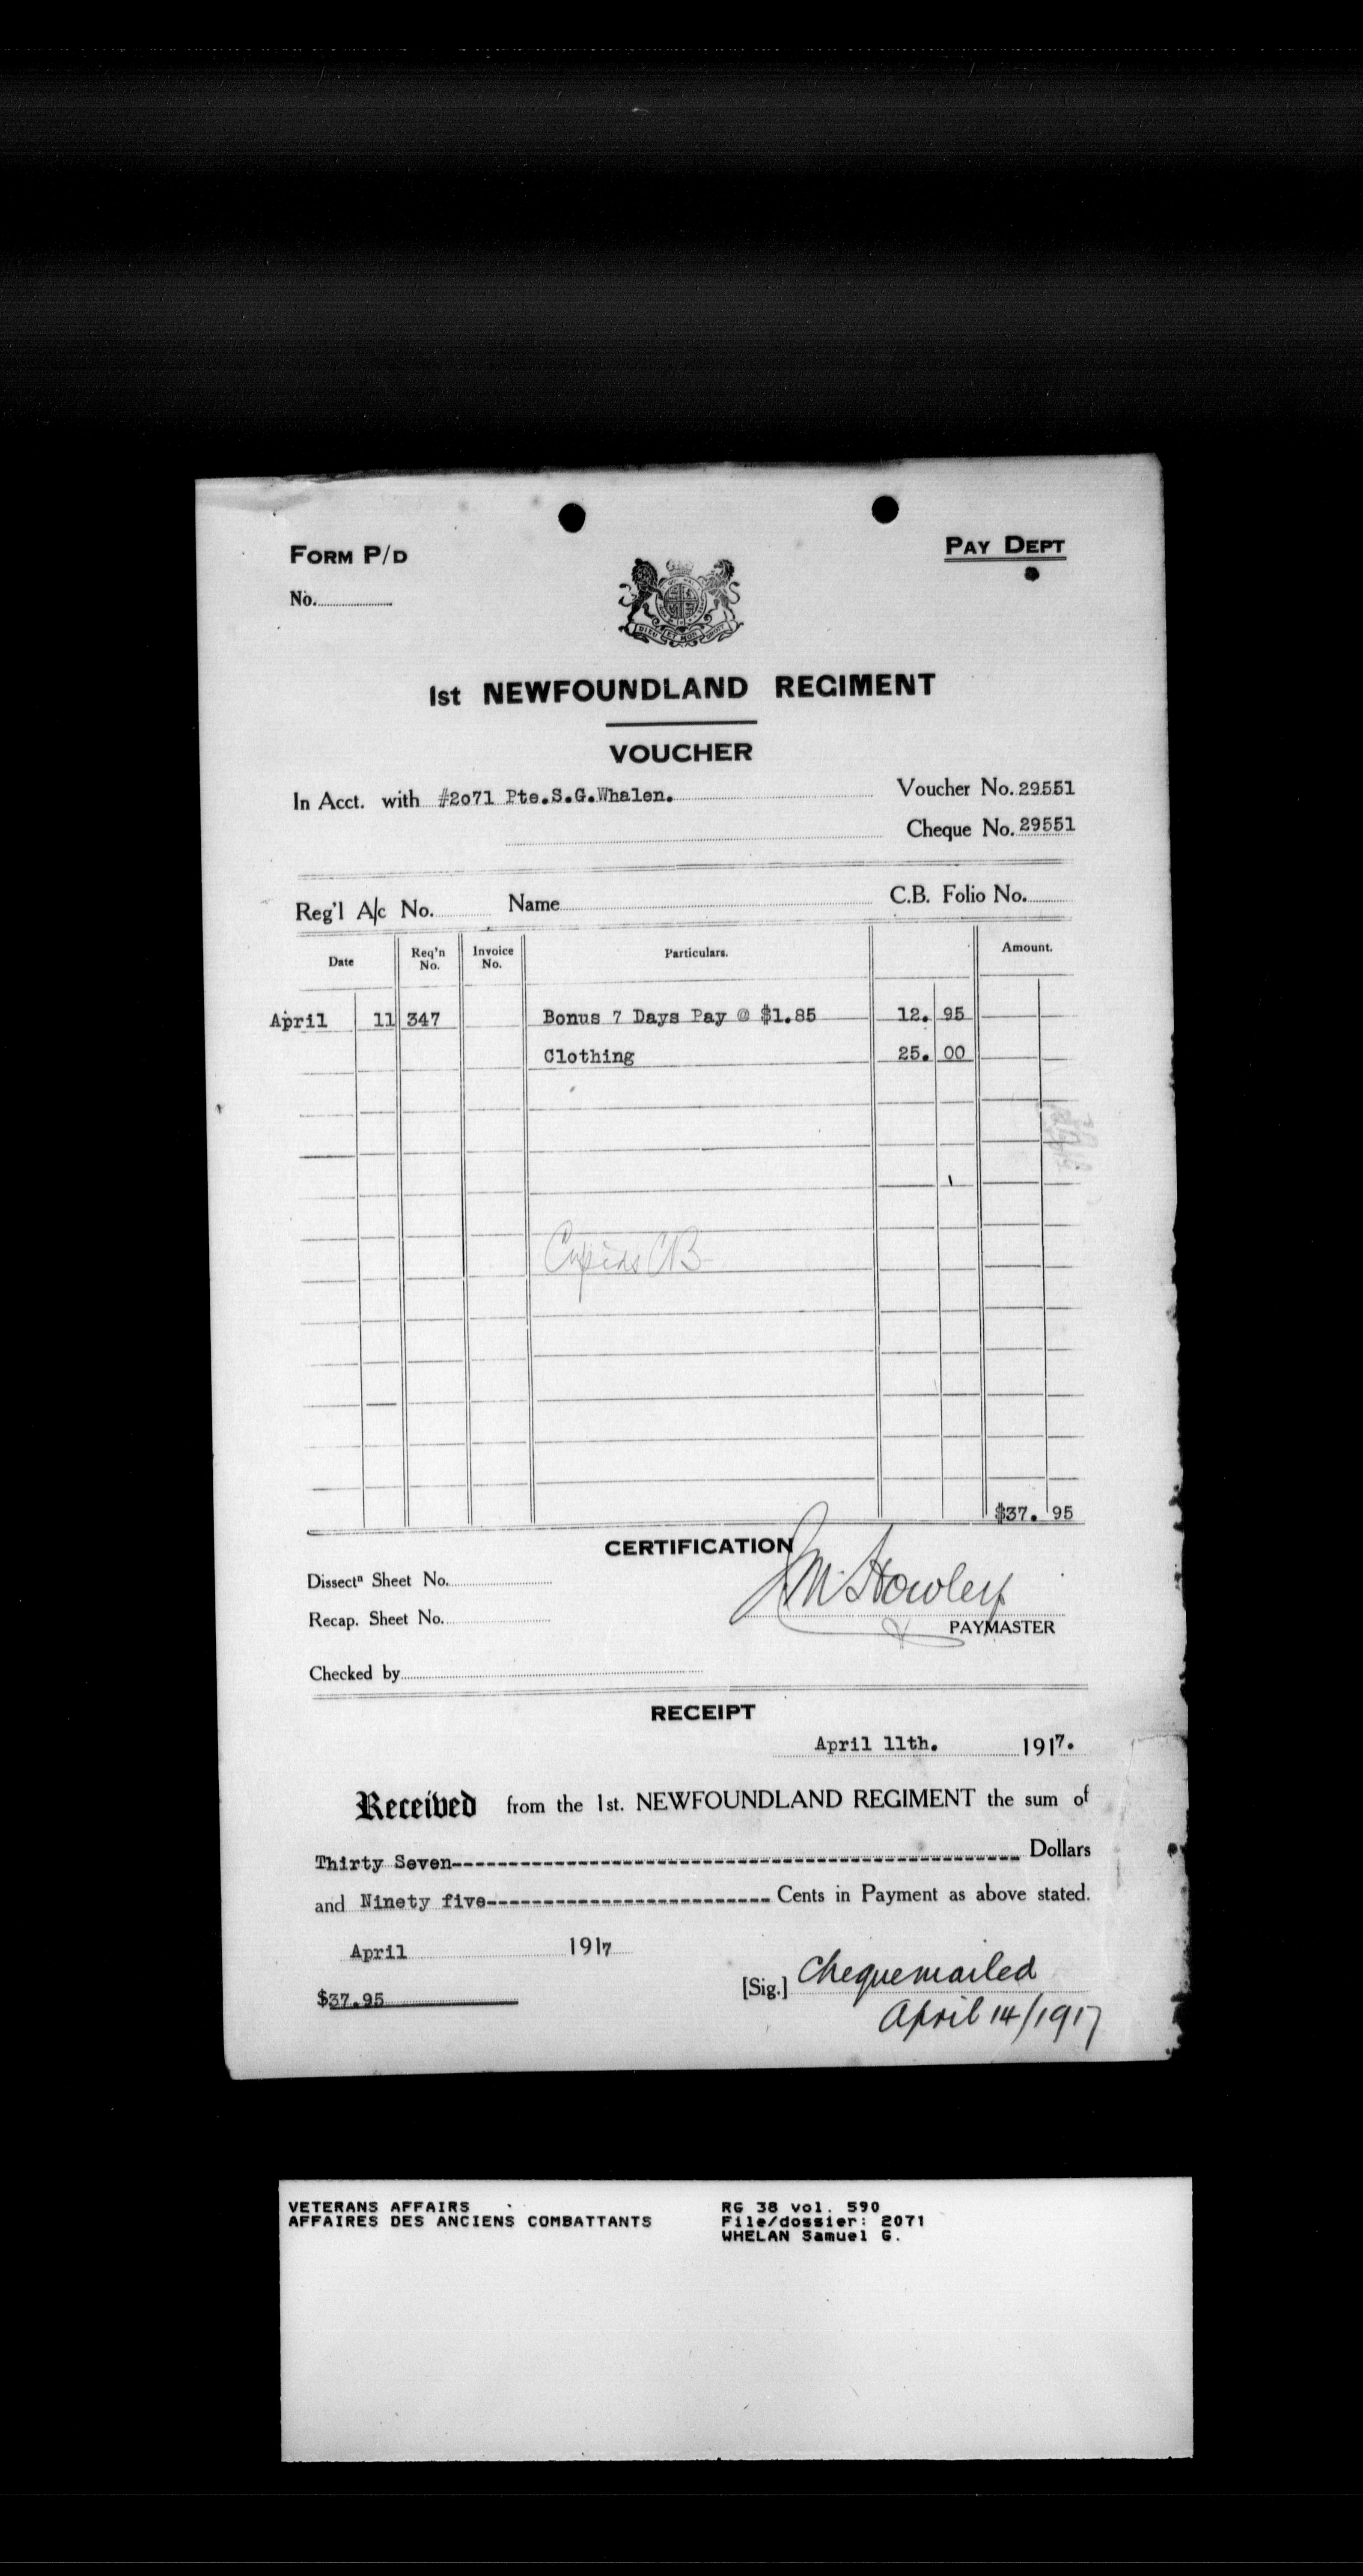 FORM P/D
PAY DEPT
No.
DIEU ET MON DROIT
1st NEWFOUNDLAND REGIMENT
VOUCHER
In Acct. with #2o71 Pte.S.G.Whalen.
Voucher No. 29551
Cheque No. 29551
Reg'l A/c No. Name C.B. Folio No.
Date Req'n No. Invoice No. Particulars. Amount.
April 11 347 Bonus 7 Days Pay @ $1.85 12. 95
Clothing 25. 00
Cupids CB
$37. 95
CERTIFICATION
Dissectn Sheet No.
J M Howley
Recap. Sheet No.
PAYMASTER
Checked by
RECEIPT
April 11th. 1917.
Received from the 1st. NEWFOUNDLAND REGIMENT the sum of
Thirty Seven------------------------------------------------------------ Dollars
and Ninety five------------------------- Cents in Payment as above stated.
April 1917
[Sig.] Cheque mailed
$37.95
April 14/1917
VETERANS AFFAIRS
AFFAIRES DES ANCIENS COMBATTANTS
RG 38 vol. 590
File/dossier: 2071
WHELAN Samuel G.